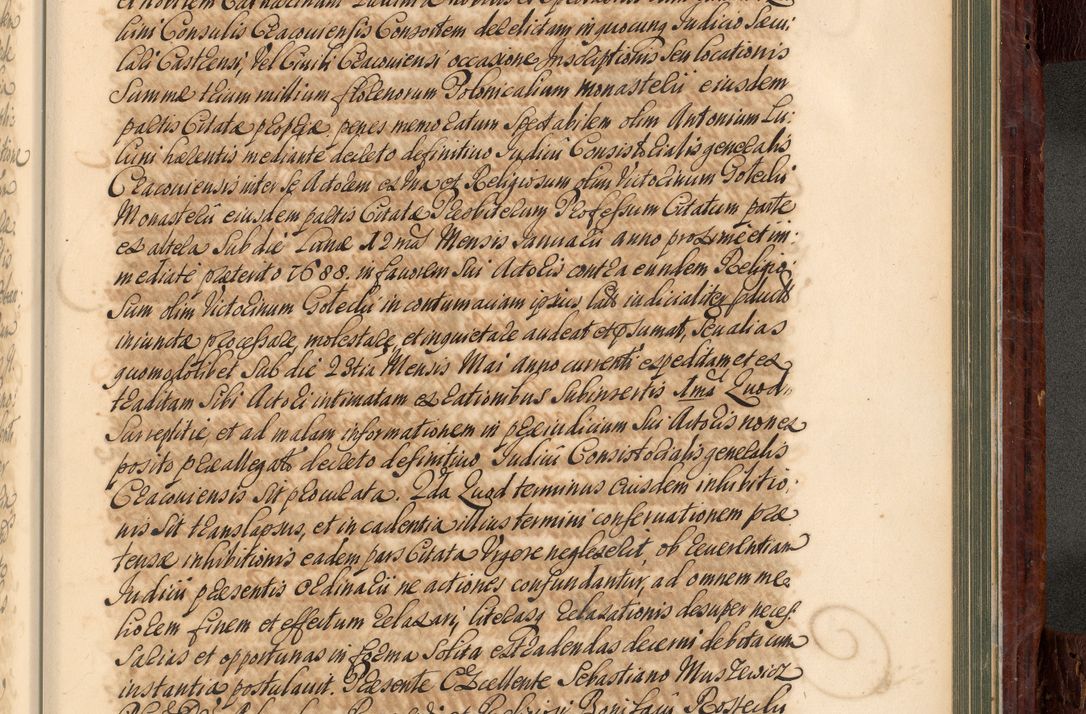 lini Consulis Cracoviensis Consortem de et dictam in quocunq Judicio Sæcu:
lari Castrensi, vel Civili Cracoviensi occasione Inscriptionis seu locationis
Summæ trium millium florenorum Polonicalium monasterii eiusdem
partis Citatæ propriæ, penes memoratum Spectabilem olim Antonium Lu:
cini hærentis mediante decreto definitivo Judicii Consistorialis generalis
Cracoviensis inter se Actorem ex una et Religiosum olim Victorinum Gotecki
Monasterii eiusdem partis Citatæ Præsbiterum Professum Citatum parte
ex altera Sub die Lunæ 12ma Mensis Januarii anno proxime et im:
mediate præterito 1688. in favorem Sui Actoris contra eundem Religio:
sum olim Victorinum Gotecki in contumaciam ipsius lato iudicialiter
iniunctæ processare, molestare, et inquietare audeat et præsumat, seu alias
quomodolibet Sub die 23tia Mensis Mai Anno currenti expeditam et ex
traditam Sibi Actori intimatam ex rationibus Subinsertis 1ma Quod
Surreptitie et ad malam informationem in præiudicium Sui Actoris non ex
posito præallegato decreto definitivo Judicii Consistorialis generalis
Cracoviensis Sit procurata. 2da Quod terminus eiusdem inhibitio:
nis Sit translapsus, et in cadentia illius termini conservationem præ
tensæ inhibitionis eadem pars Citata Urgere neglexerit, ob reverentiam
Judicii præsentis ordinarii ne actiones confundantur, ad omnem me
liorem finem et effectum relaxari, literasq relaxationis desuper necess
sarias et opportunas in forma Solita extradendas decerni debita cum
instantia postulavit. Præsente Excellente Sebastiano Muszewicz